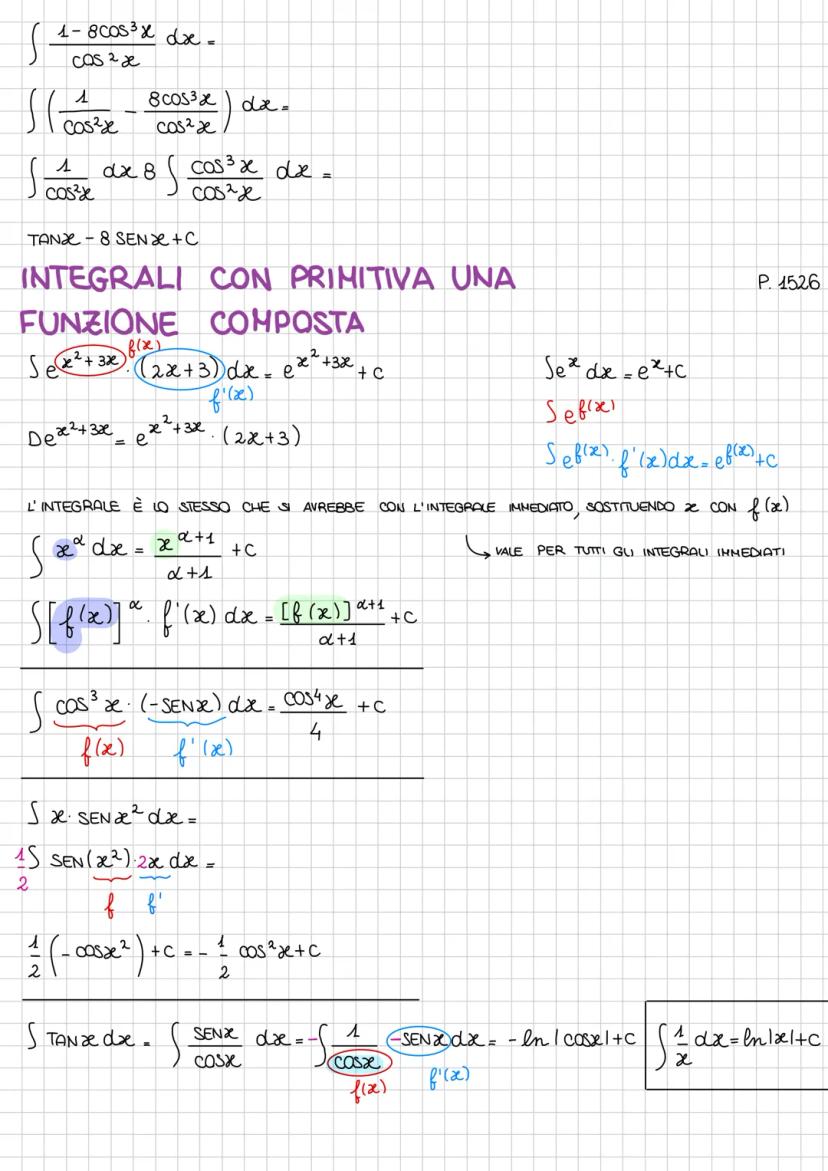 ∫ (1 - 8cos³x)/(cos²x) dx =
∫ (1/cos²x - 8cos³x/cos²x) dx =
∫ 1/cos²x dx 8 ∫ cos³x/cos²x dx =
TANx - 8 SENx + C
INTEGRALI CON PRIMITIVA UNA P. 1526
FUNZIONE COMPOSTA
f(x)
∫e^(x²+3x) · (2x+3) dx = e^(x²+3x) + C ∫e^x dx = e^x + C
f'(x) ∫e^f(x)
De^(x²+3x) = e^(x²+3x) · (2x+3) ∫e^f(x) · f'(x)dx = e^f(x) + C
L'INTEGRALE È LO STESSO CHE SI AVREBBE CON L'INTEGRALE IMMEDIATO, SOSTITUENDO x CON f(x)
∫ x^α dx = x^(α+1)/(α+1) + C ↳ VALE PER TUTTI GLI INTEGRALI IMMEDIATI
∫ [f(x)]^α · f'(x) dx = [f(x)]^(α+1)/(α+1) + C
∫ cos³x · (-SENx) dx = cos⁴x/4 + C
f(x) f'(x)
∫ x · SENx² dx =
1/2 ∫ SEN(x²) · 2x dx =
f f'
1/2 (-cosx²) + C = - 1/2 cos²x + C
∫ TANx dx = ∫ SENx/cosx dx = -∫ 1/cosx -SENx dx = -ln|cosx| + C ∫ 1/x dx = ln|x| + C
f(x) f'(x)